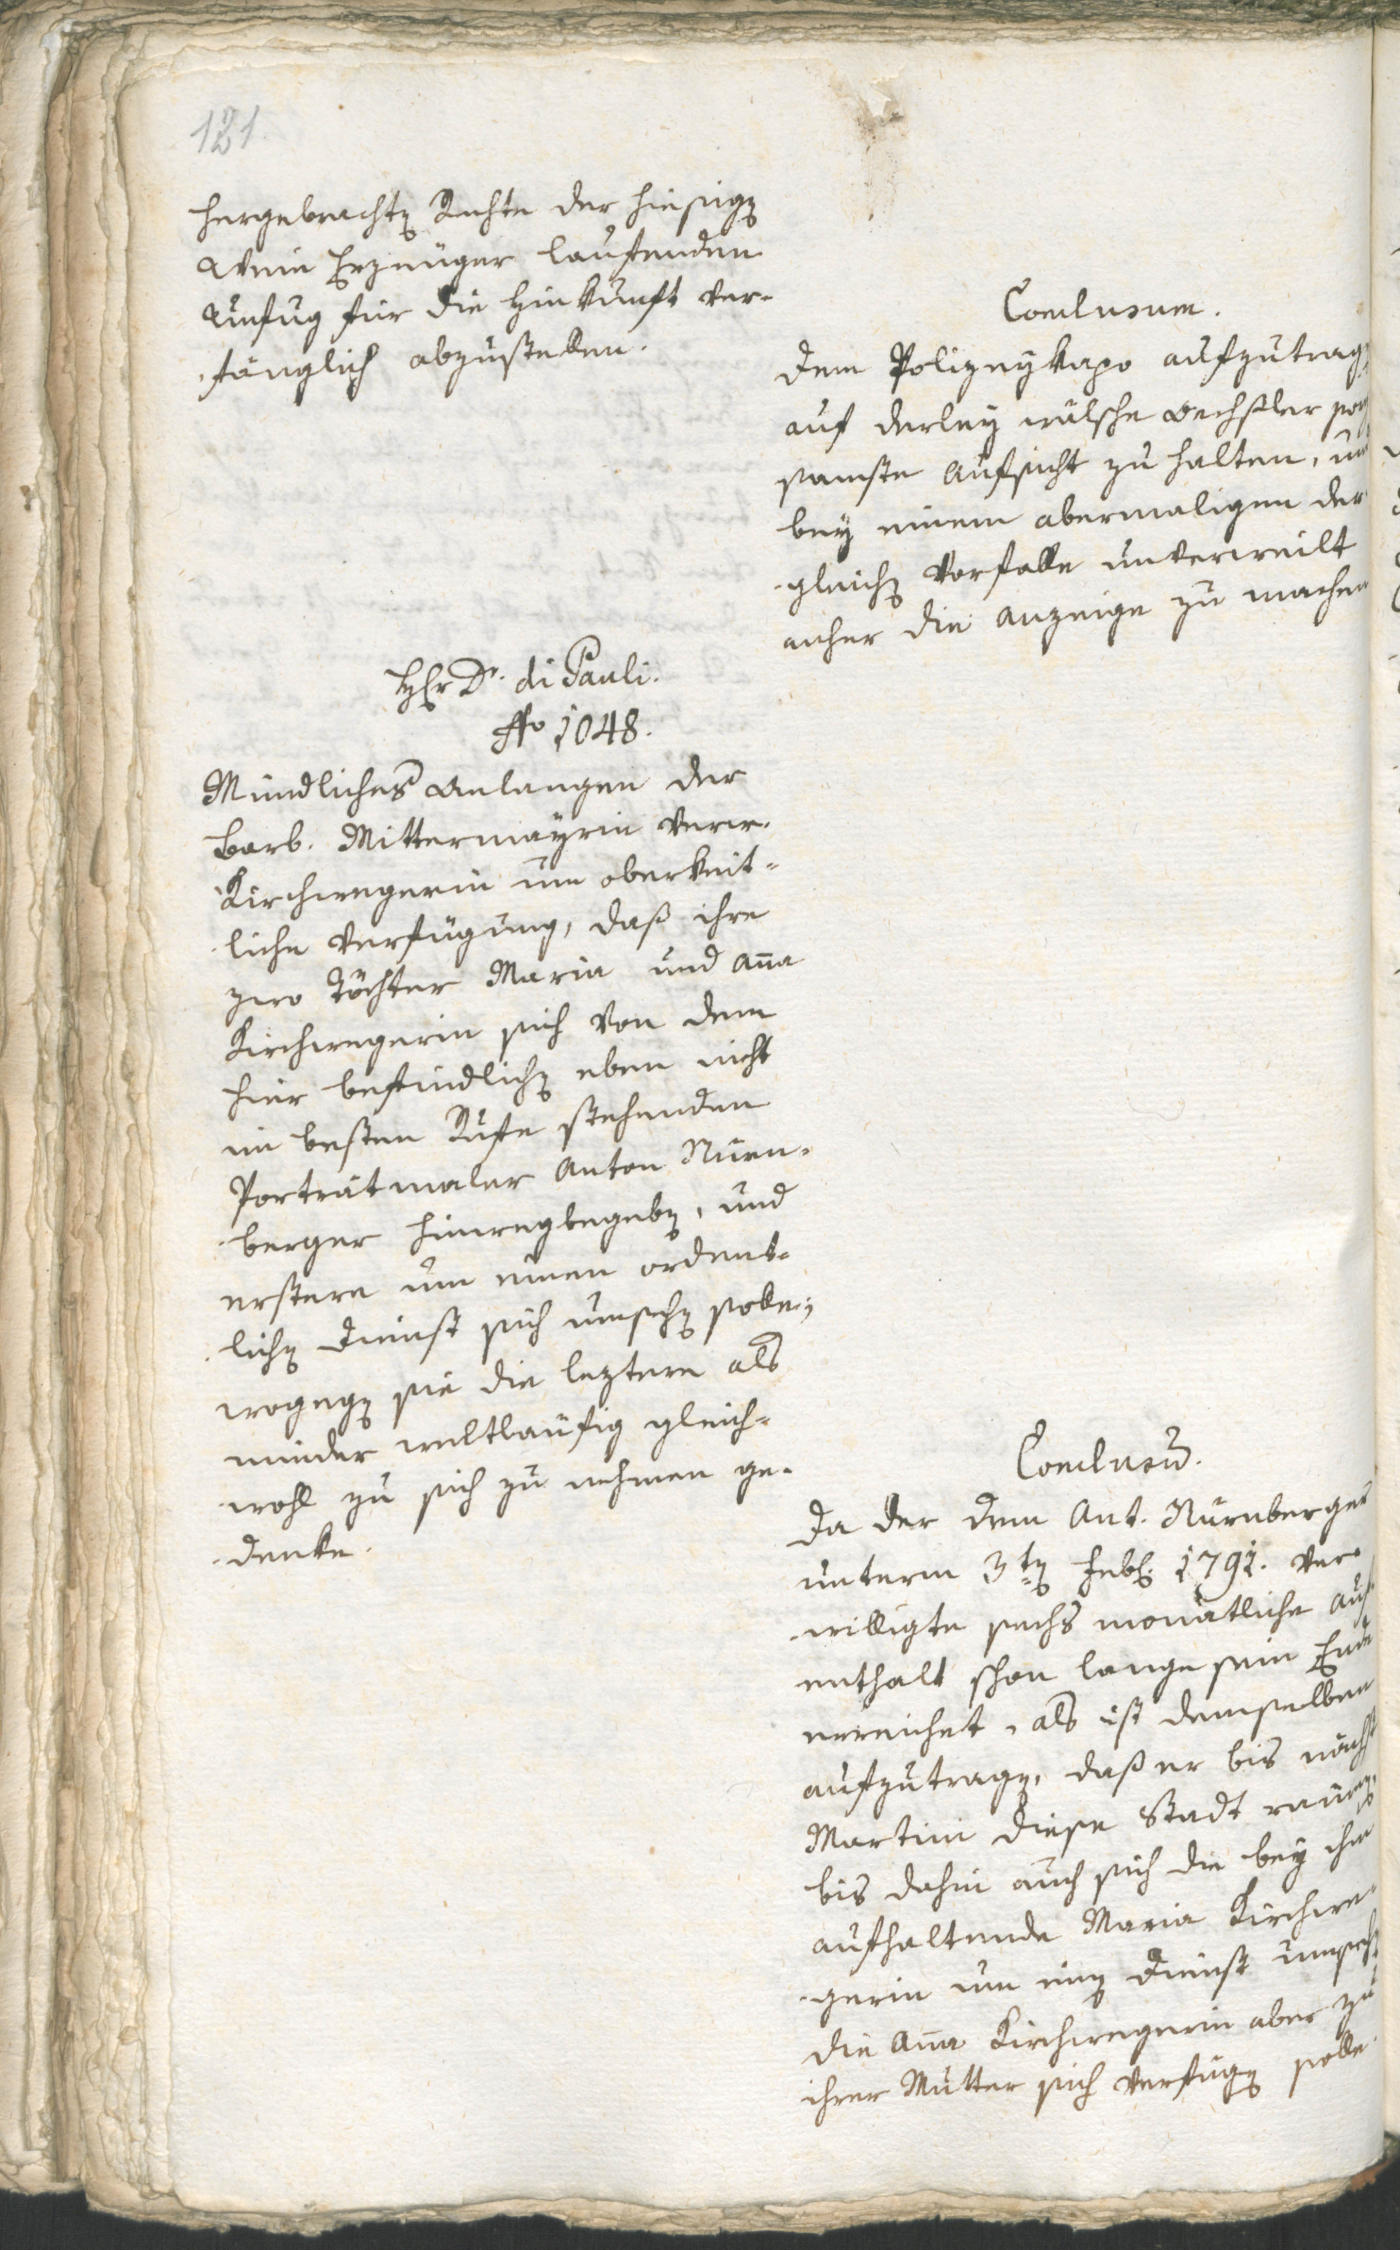 121
hergebrachten Rechte der hiesigen
Wein Erzeuger laufenden
Unfug für die Hinkunft ver-
fänglich abzustellen.
Conclusum.
Dem Polizeykapo aufzutragen
auf derley wälsche
samste Aufsicht zu halten, und
bey einem abermaligen der
gleichen Vorfalle unverweilt
anher die Anzeige zu machen
HEr Dr. di Pauli.
No 1048.
Mündliches Anlangen der
Barb. Mittermayrin verw.
Kirchwegerin um oberkeit-
liche Verfügung, daß ihre
zwo Töchter Maria und Aña
Kirchwegerin sich von dem
hier befindlichen eben nicht
im besten Rufe stehenden
Porträtmaler Anton Nürn-
berger hinwegbegeben, und
erstere um einen ordent-
lichen Dienst sich umsehen solle;
wogegen sie die leztere als
minder weltläufig gleich-
wohl zu sich zu nehmen ge-
denke.
Conclusum.
Da der dem Ant. Nürnberger
unterm 3ten Febr. 1791. ver-
willigte sechs monatliche Auf-
enthalt schon lange sein Ende
erreichet, als ist demselben
aufzutragen, daß er bis nächst
Martini diese Stadt räumen,
bis dahin auch sich die bey ihm
aufhaltende Maria Kirchwe-
gerin um einen Dienst umsehen
die Aña Kirchwegerin aber zu
ihrer Mutter sich verfügen solle.